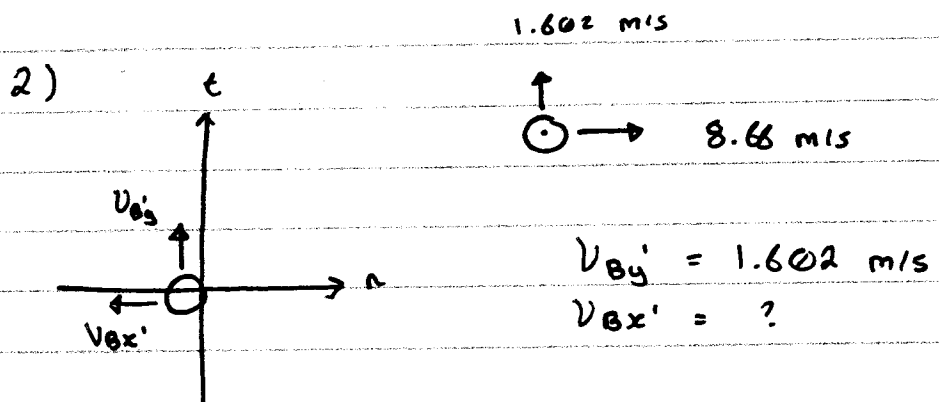 1.602 m/s
2)
t
8.66 m/s
VBy'
n
VBy' = 1.602 m/s
VBx' = ?
VBx'